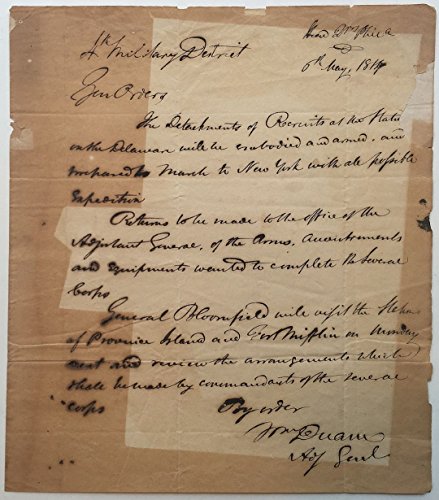 4th Military District
Head Qrs Phila
6th May, 1814
Gen Orders
The Detachments of Recruits at the Stations
on the Delaware will be embodied and armed, and
prepared to March to New York with all possible
Expedition
Returns to be made to the office of the
Adjutant General, of the Arms, Accoutrements
and Equipments wanted to complete the several
Corps
General Bloomfield will visit the Stations
of Province Island and Fort Mifflin on Monday
next and review the arrangements which
shall be made by commandants of the several
Corps
By order
Wm Duane
Adj Genl